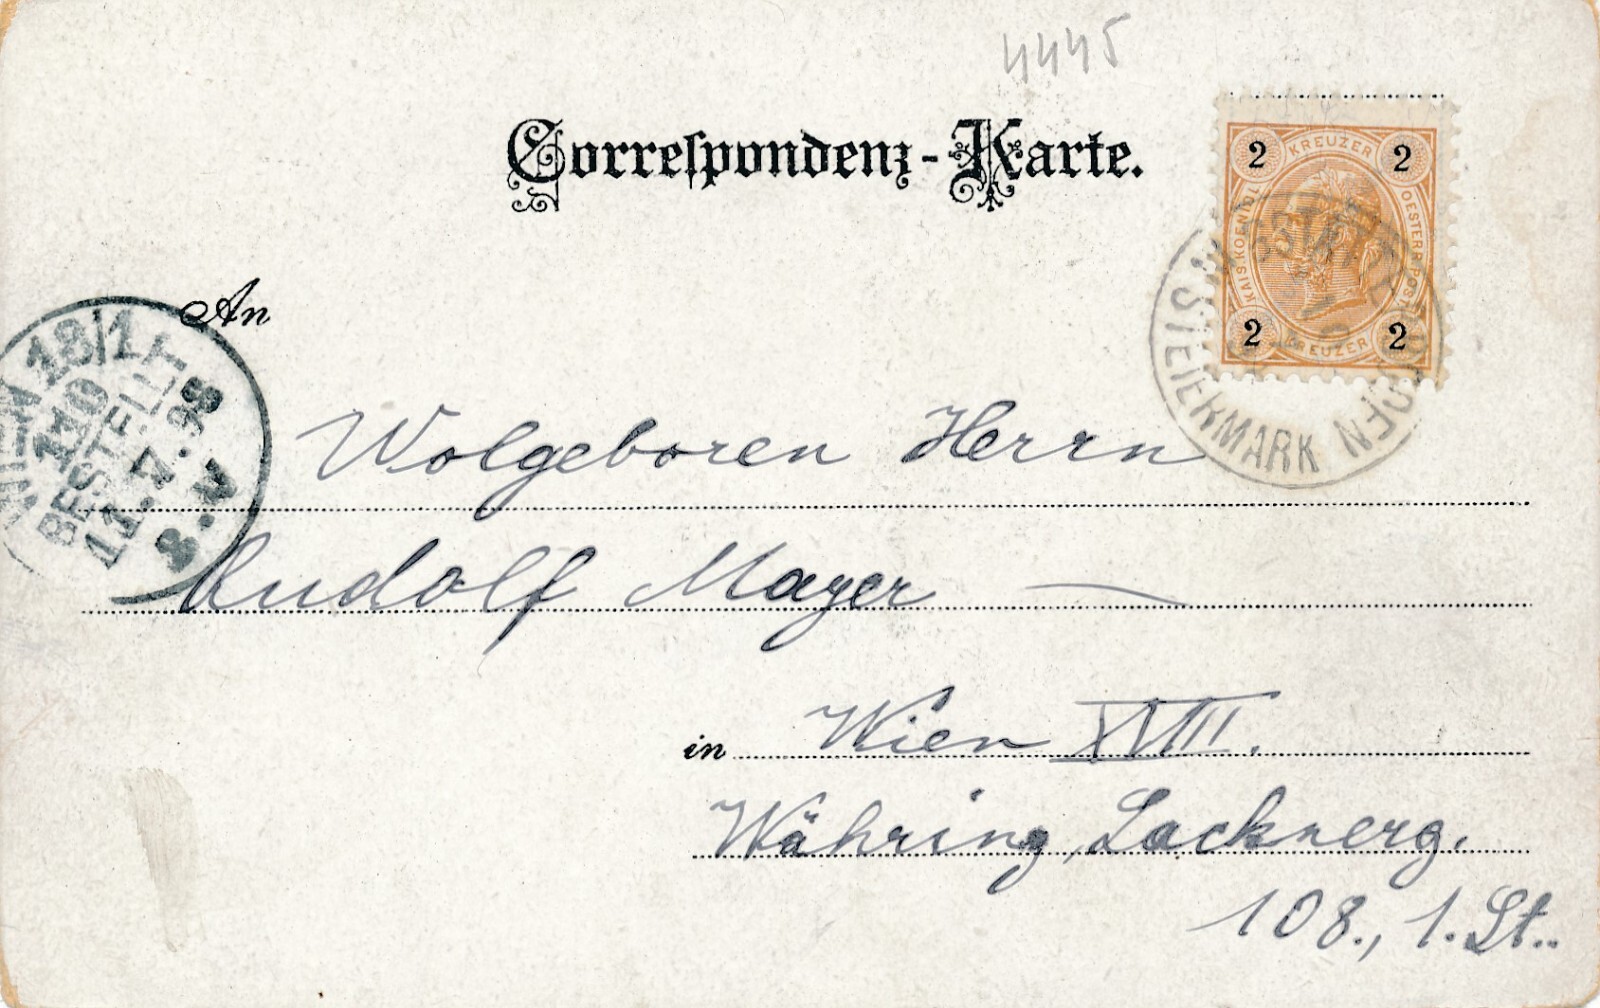 4445
Correspondenz-Karte.
2 KREUZER 2
KAIS KOENIGL OESTERR POST
2 KREUZER 2
STEIERMARK
An
WIEN 18/1
110
BESTELLT
11.7.98
8.V
Wolgeboren Herrn
Rudolf Mayer
in Wien XVIII.
Währing, Lacknerg.
108., 1. St..